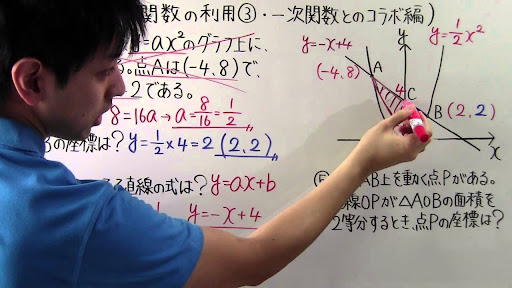 関数の利用③・一次関数とのコラボ編)
y=ax²のグラフ上に、
る。点Aは(-4,8)で、
2である。
8=16a→a=8/16=1/2
の座標は?y=1/2×4=2(2,2)
る直線の式は?y=ax+b
y=-x+4
y=-x+4
y
y=1/2x²
(-4,8)
A
4
C
B(2,2)
x
AB上を動く点Pがある。
線OPが△AOBの面積を
2等分するとき、点Pの座標は?